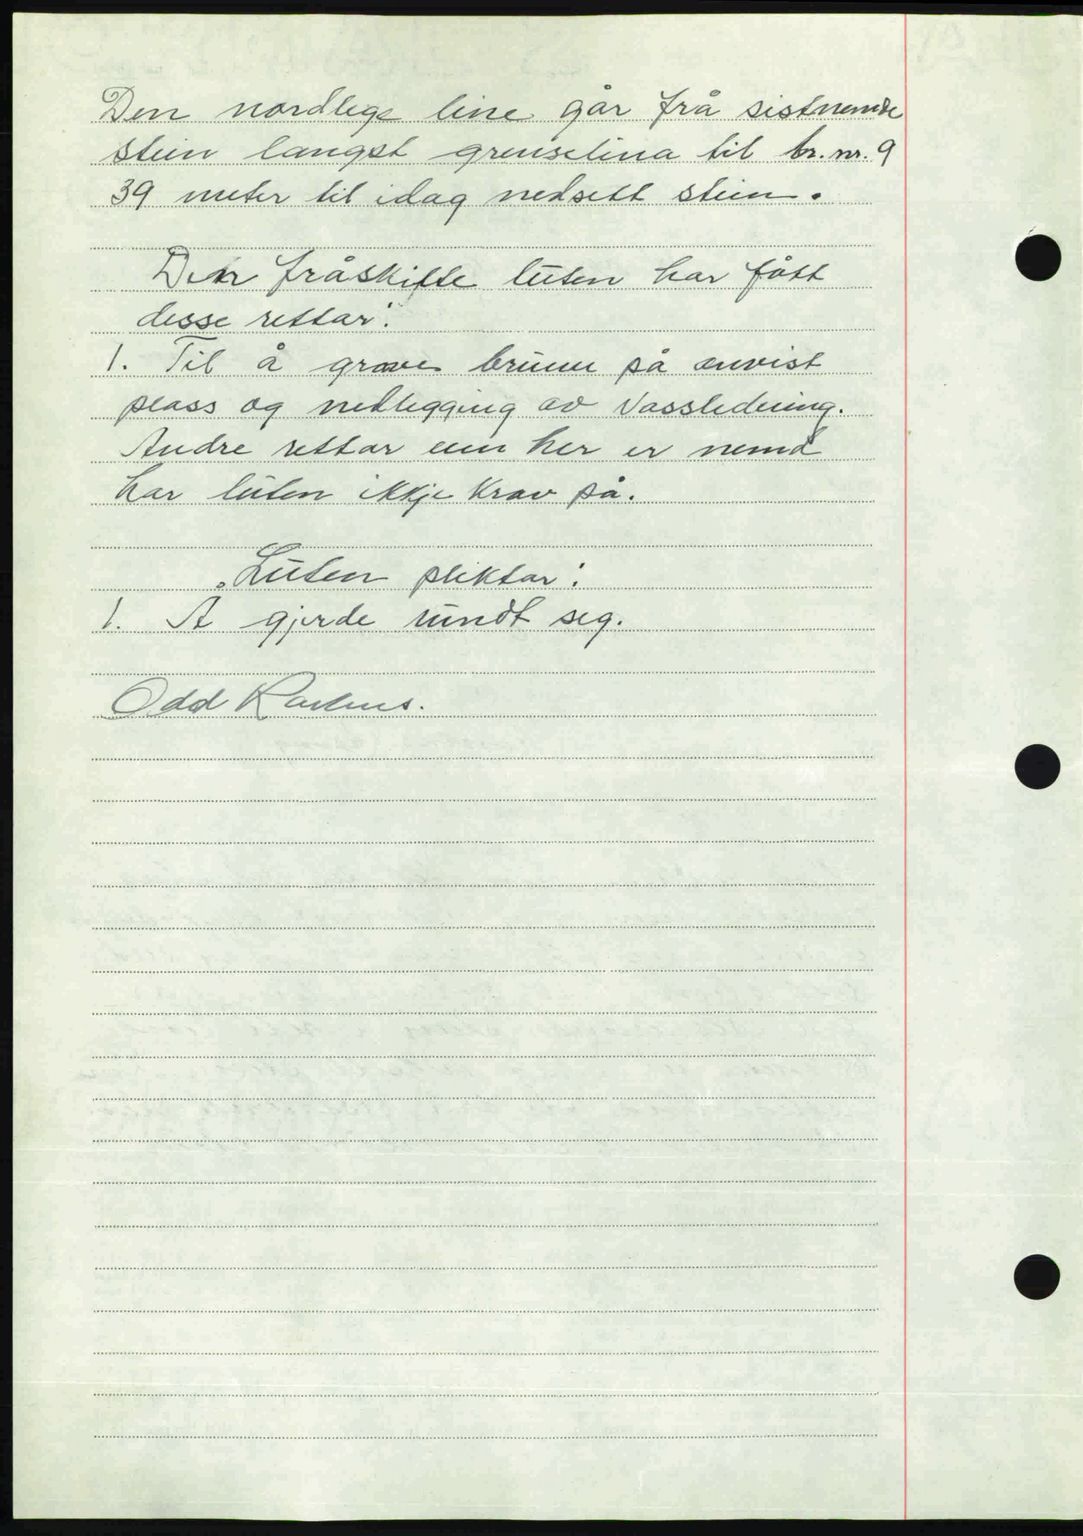 Den nordlege line går frå sistnemde
stein langst grenselina til br. nr. 9
39 meter til idag nedsett stein.
Den fråskifte luten har fått
desse rettar:
1. Til å grave brunn på anvist
plass og nedlegging av vassledning.
Andre rettar enn her er nemd
har luten ikkje krav på.
Luten pliktar:
1. Å gjerde rundt seg.
Odd